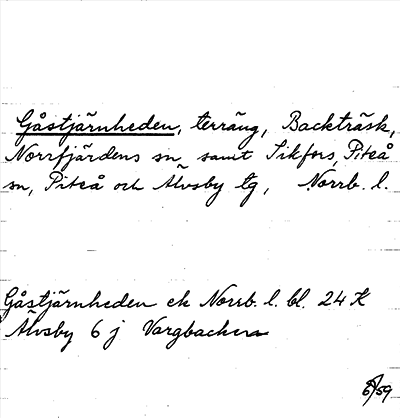 Gåstjärnheden, terräng, Backträsk,
Norrfjärdens sn, samt Sikfors, Piteå
sn, Piteå och Älvsby tg, Norrb. l.
Gåstjärnheden ek Norrb. l. bl. 24 K
Älvsby 6 j Vargbacken